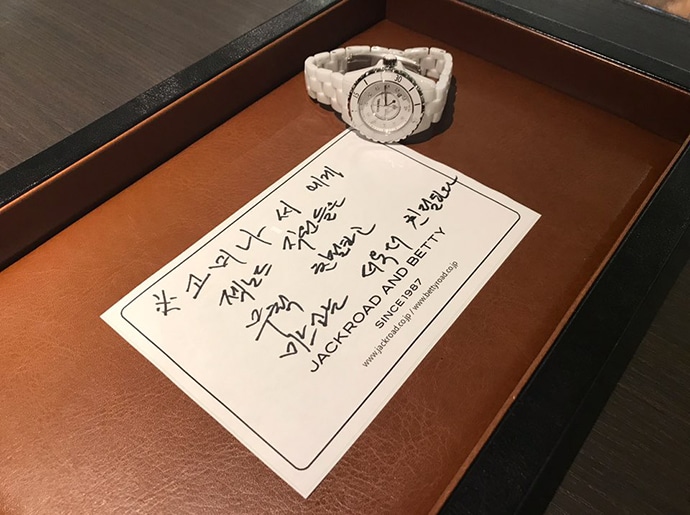 ※ 고미나서에게
직원들은
무척 친절하고
더욱더 친절합니다
JACKROAD AND BETTY
SINCE 1987
www.jackroad.co.jp / www.bettyroad.co.jp